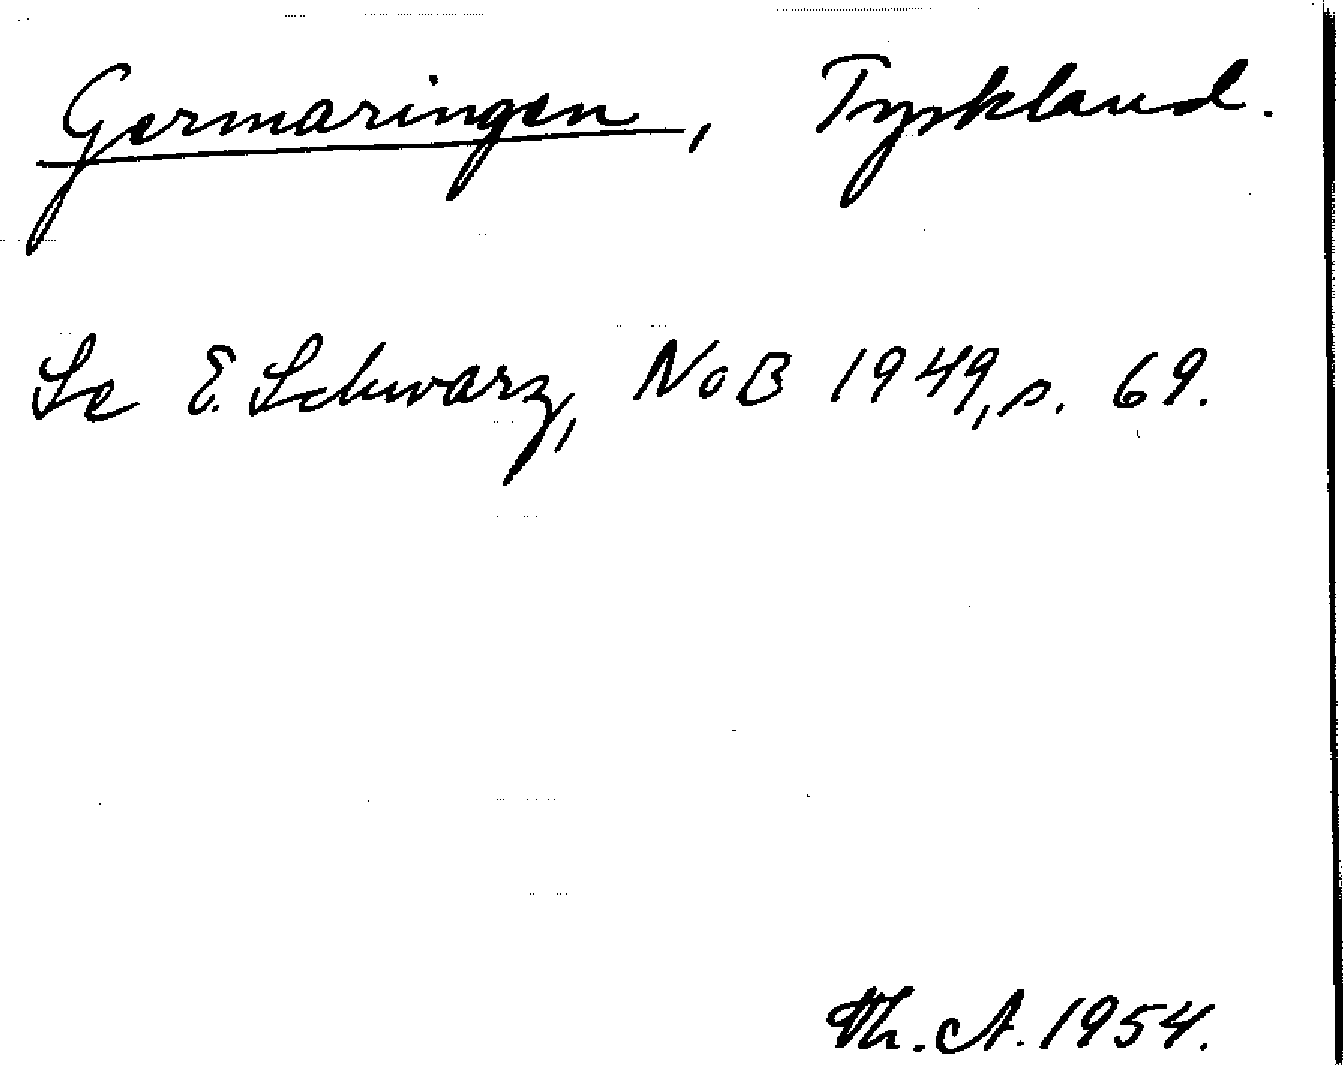 Germaringen, Tyskland.
Se E. Schwarz, NoB 1949, s. 69.
Th. A. 1954.